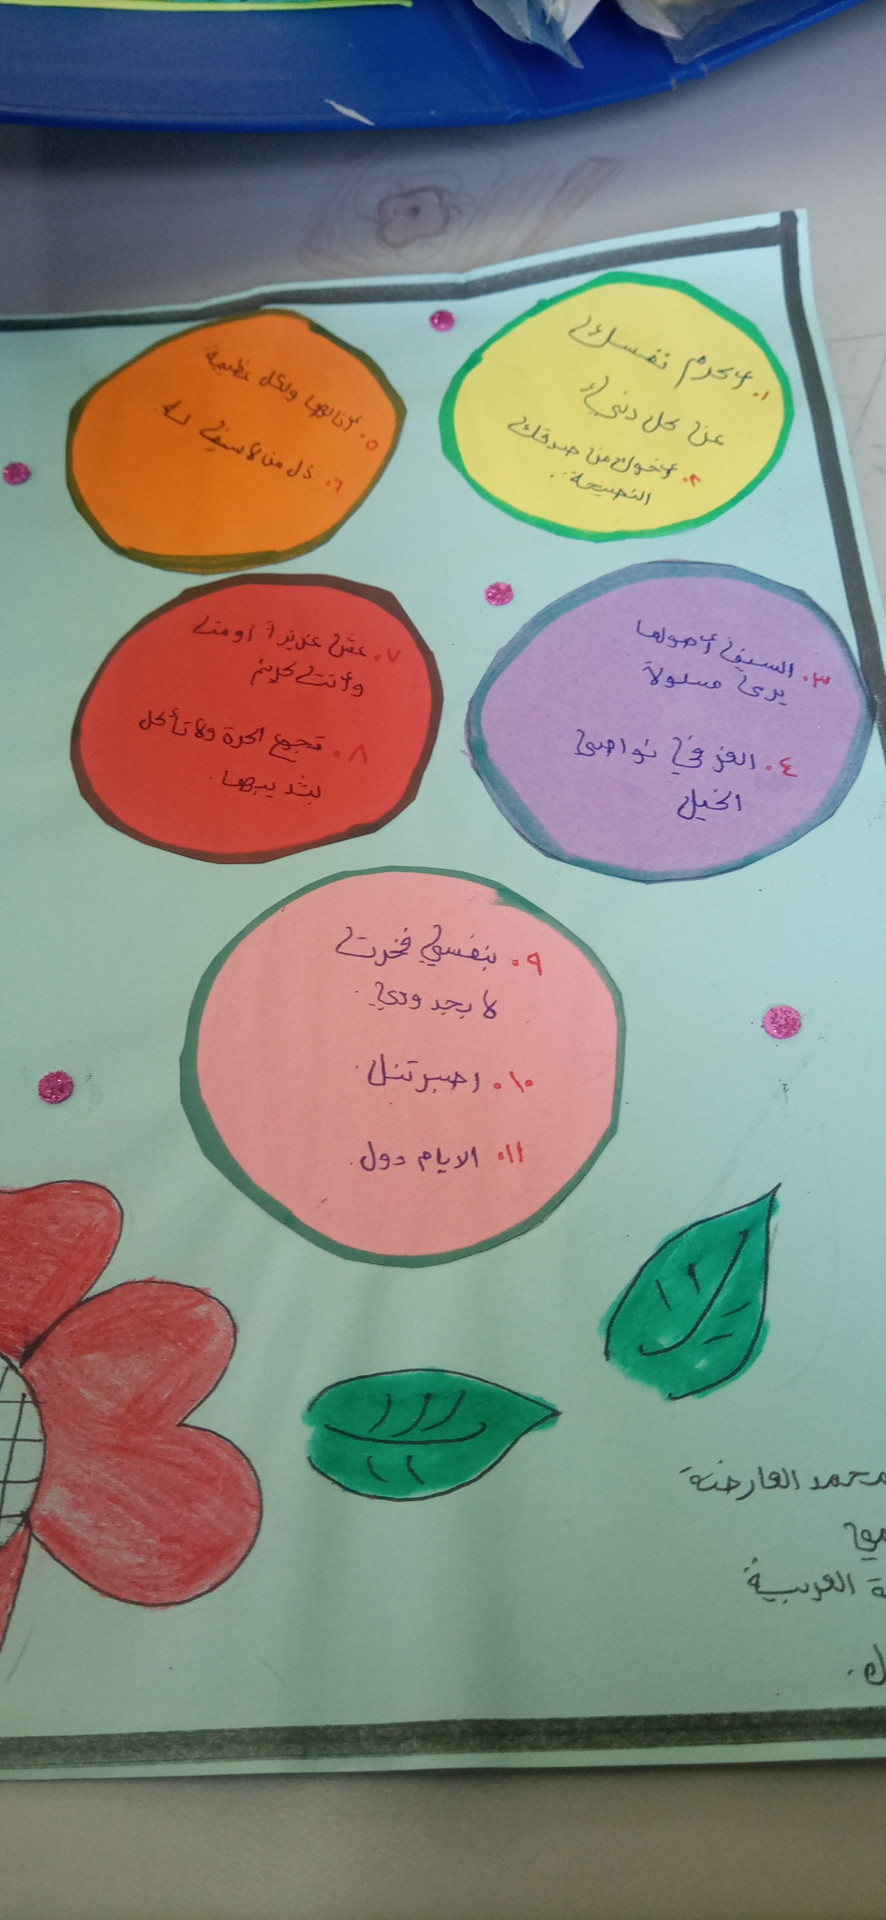 ١. أكرم نفسك
عن كل دنيء
٢. أخوك من صدقك
النصيحة.
٣. السيف أهولها
يرى مسلولاً
٤. العز في نواصي
الخيل
٥. أنا لها ولكل عظيمة
٦. ذل من لا سيف له.
٧. عش عزيزاً أو مت
وأنت كريم
٨. تجوع الحرة ولا تأكل
بثدييها.
٩. بنفسي فخرت
لا بجدودي.
١٠. اصبر تنل.
١١. الايام دول.
محمد العارضة
ة العربية